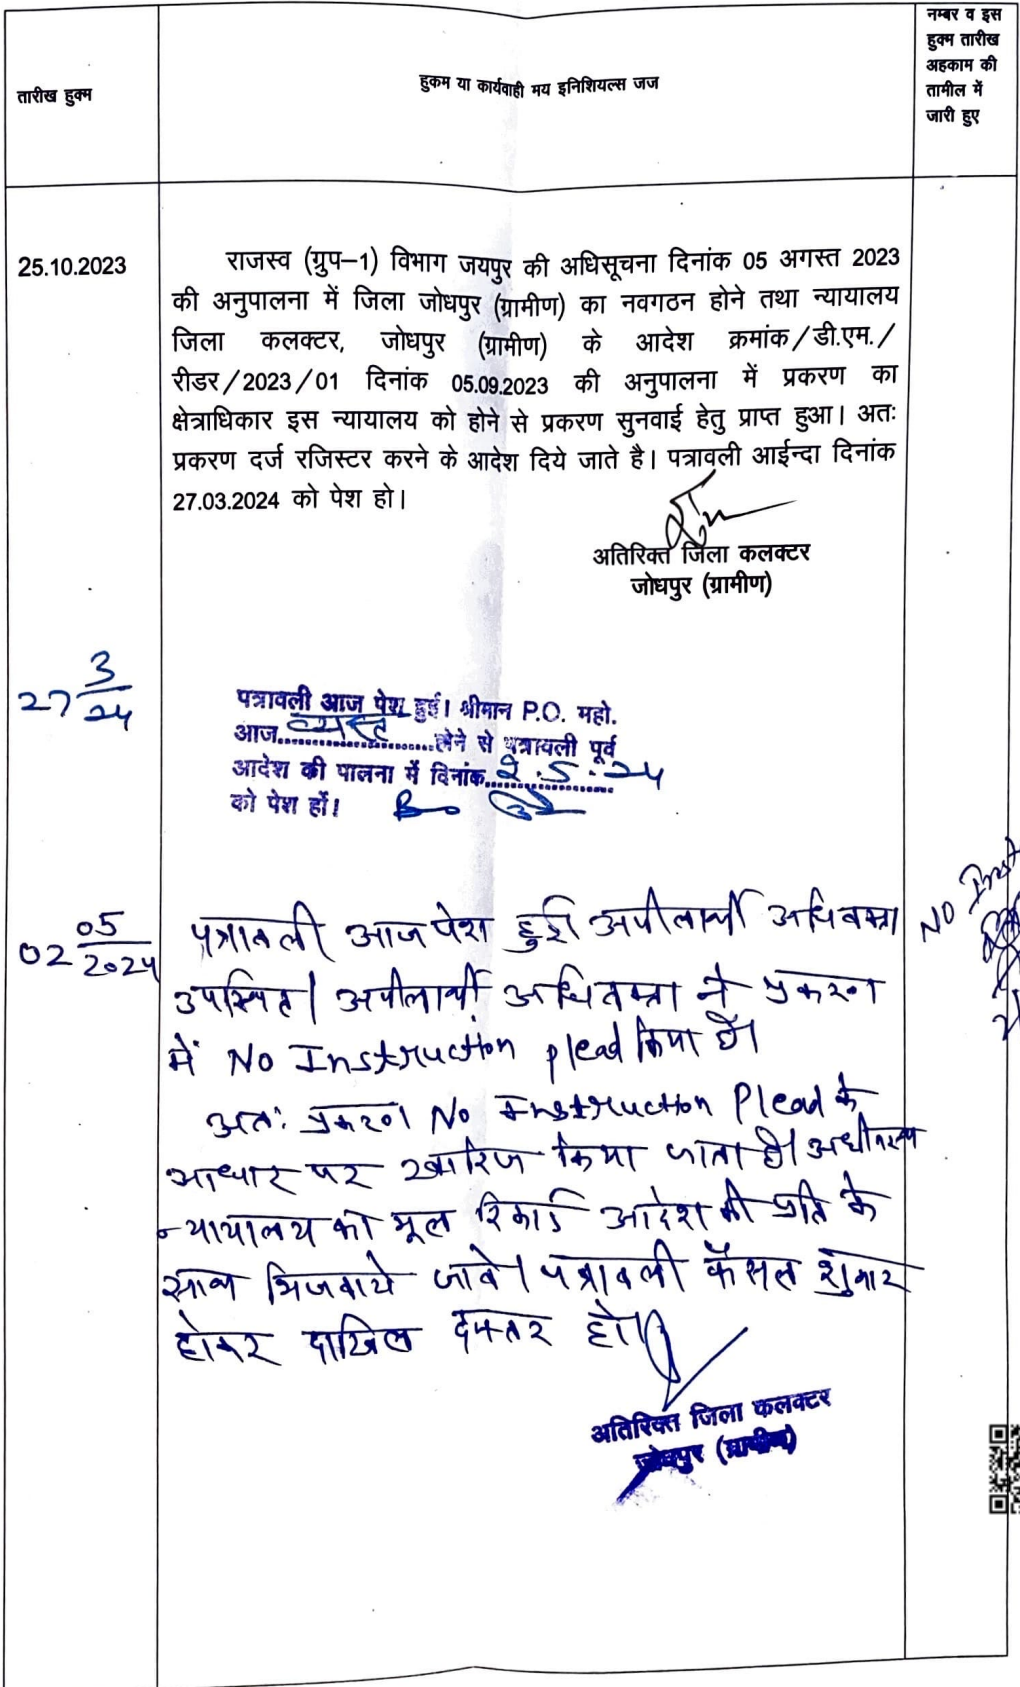 तारीख हुक्म
हुकम या कार्यवाही मय इनिशियल्स जज
नम्बर व इस
हुक्म तारीख
अहकाम की
तामील में
जारी हुए
25.10.2023
राजस्व (ग्रुप–1) विभाग जयपुर की अधिसूचना दिनांक 05 अगस्त 2023
की अनुपालना में जिला जोधपुर (ग्रामीण) का नवगठन होने तथा न्यायालय
जिला कलक्टर, जोधपुर (ग्रामीण) के आदेश क्रमांक/डी.एम./
रीडर/2023/01 दिनांक 05.09.2023 की अनुपालना में प्रकरण का
क्षेत्राधिकार इस न्यायालय को होने से प्रकरण सुनवाई हेतु प्राप्त हुआ। अतः
प्रकरण दर्ज रजिस्टर करने के आदेश दिये जाते है। पत्रावली आईन्दा दिनांक
27.03.2024 को पेश हो।
अतिरिक्त जिला कलक्टर
जोधपुर (ग्रामीण)
27 3/24
पत्रावली आज पेश हुई। श्रीमान P.O. महो.
आज व्यस्त होने से पत्रावली पूर्व
आदेश की पालना में दिनांक 2.5.24
को पेश हों।
02 05/2024
पत्रावली आज पेश हुई अपीलार्थी अधिवक्ता
उपस्थित। अपीलार्थी अधिवक्ता ने प्रकरण
में No Instruction plead किया है।
अतः प्रकरण No Instruction Plead के
आधार पर खारिज किया जाता है। अधीनस्थ
न्यायालय का मूल रिकार्ड आदेश की प्रति के
साथ भिजवाये जावे। पत्रावली फैसल शुमार
होकर दाखिल दफ्तर हो।
No Inst
अतिरिक्त जिला कलक्टर
जोधपुर (ग्रामीण)